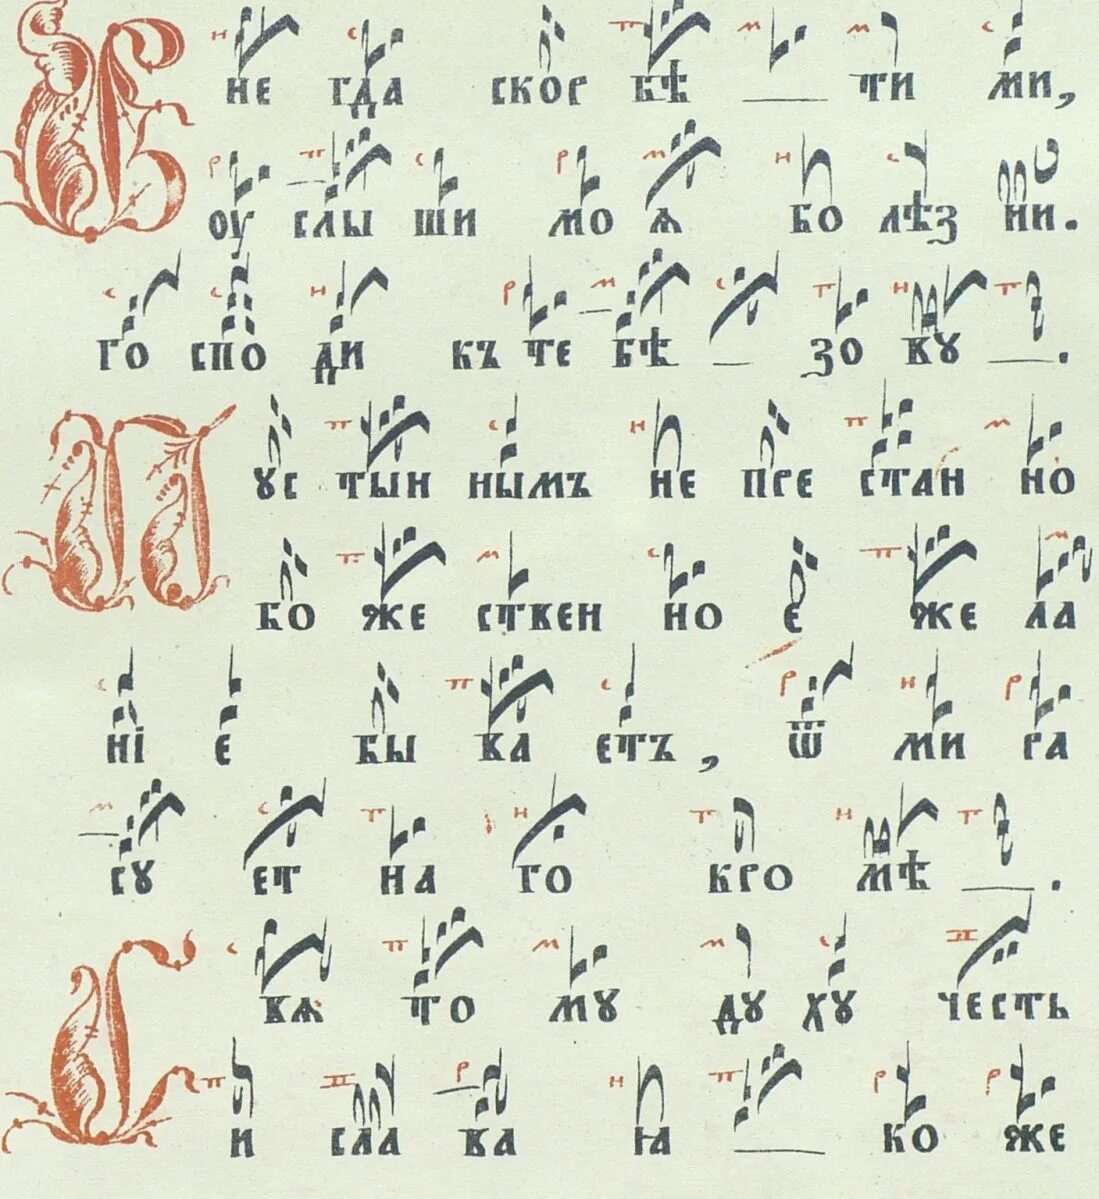 Внегда скорбѣ — ти ми,
оуслыши моѧ болѣзни.
Господи къ тебѣ — зову — .
Пустыннымъ непрестанно
божественное жела
нїе бываетъ, ѿ мира
суетнаго кромѣ — .
Свѧтому духу честь
и слава ꙗ — коже